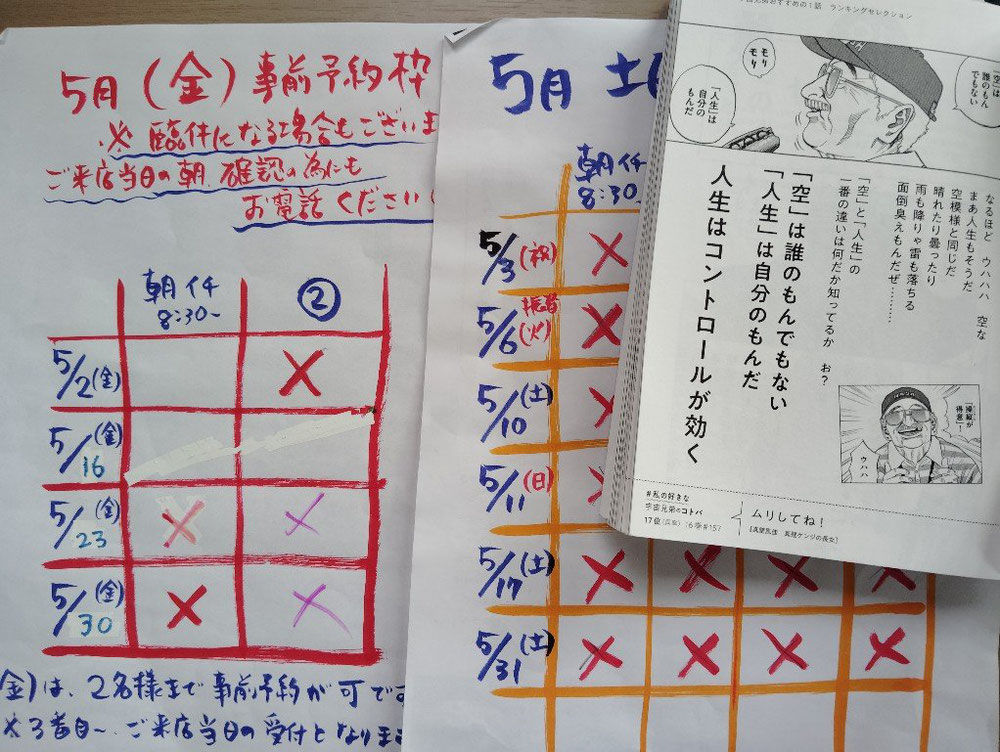 5月(金)事前予約枠
※臨休になる場合もございま
ご来店当日の朝、確認の為にも
お電話ください
朝イチ
8:30~
②
5/2(金)
×
5/16(金)
5/23(金)
×
×
5/30(金)
×
×
金)は、2名様まで事前予約が可です
※3番目~ご来店当日の受付となりま
5月 土
朝イチ
8:30
5/3(祝)
×
振替
5/6(火)
×
5/10(土)
×
5/11(日)
×
5/17(土)
× × × ×
5/31(土)
× × × ×
おすすめの1話 ランキングセレクション
「空」は
誰のもん
でもない
モリ
モリ
「人生」は
自分の
もんだ
なるほど ウハハハ 空な
まあ人生もそうだ
空模様と同じだ
晴れたり曇ったり
雨も降りゃ雷も落ちる
面倒臭えもんだぜ………
「空」と「人生」の
一番の違いは何だか知ってるか お?
「空」は誰のもんでもない
「人生」は自分のもんだ
人生はコントロールが効く
「操縦が
得意」!
ウハハ
#私の好きな
宇宙兄弟のコトバ
17位 (6巻#57)
ムリしてね!
【真壁風佳 真壁ケンジの長女】